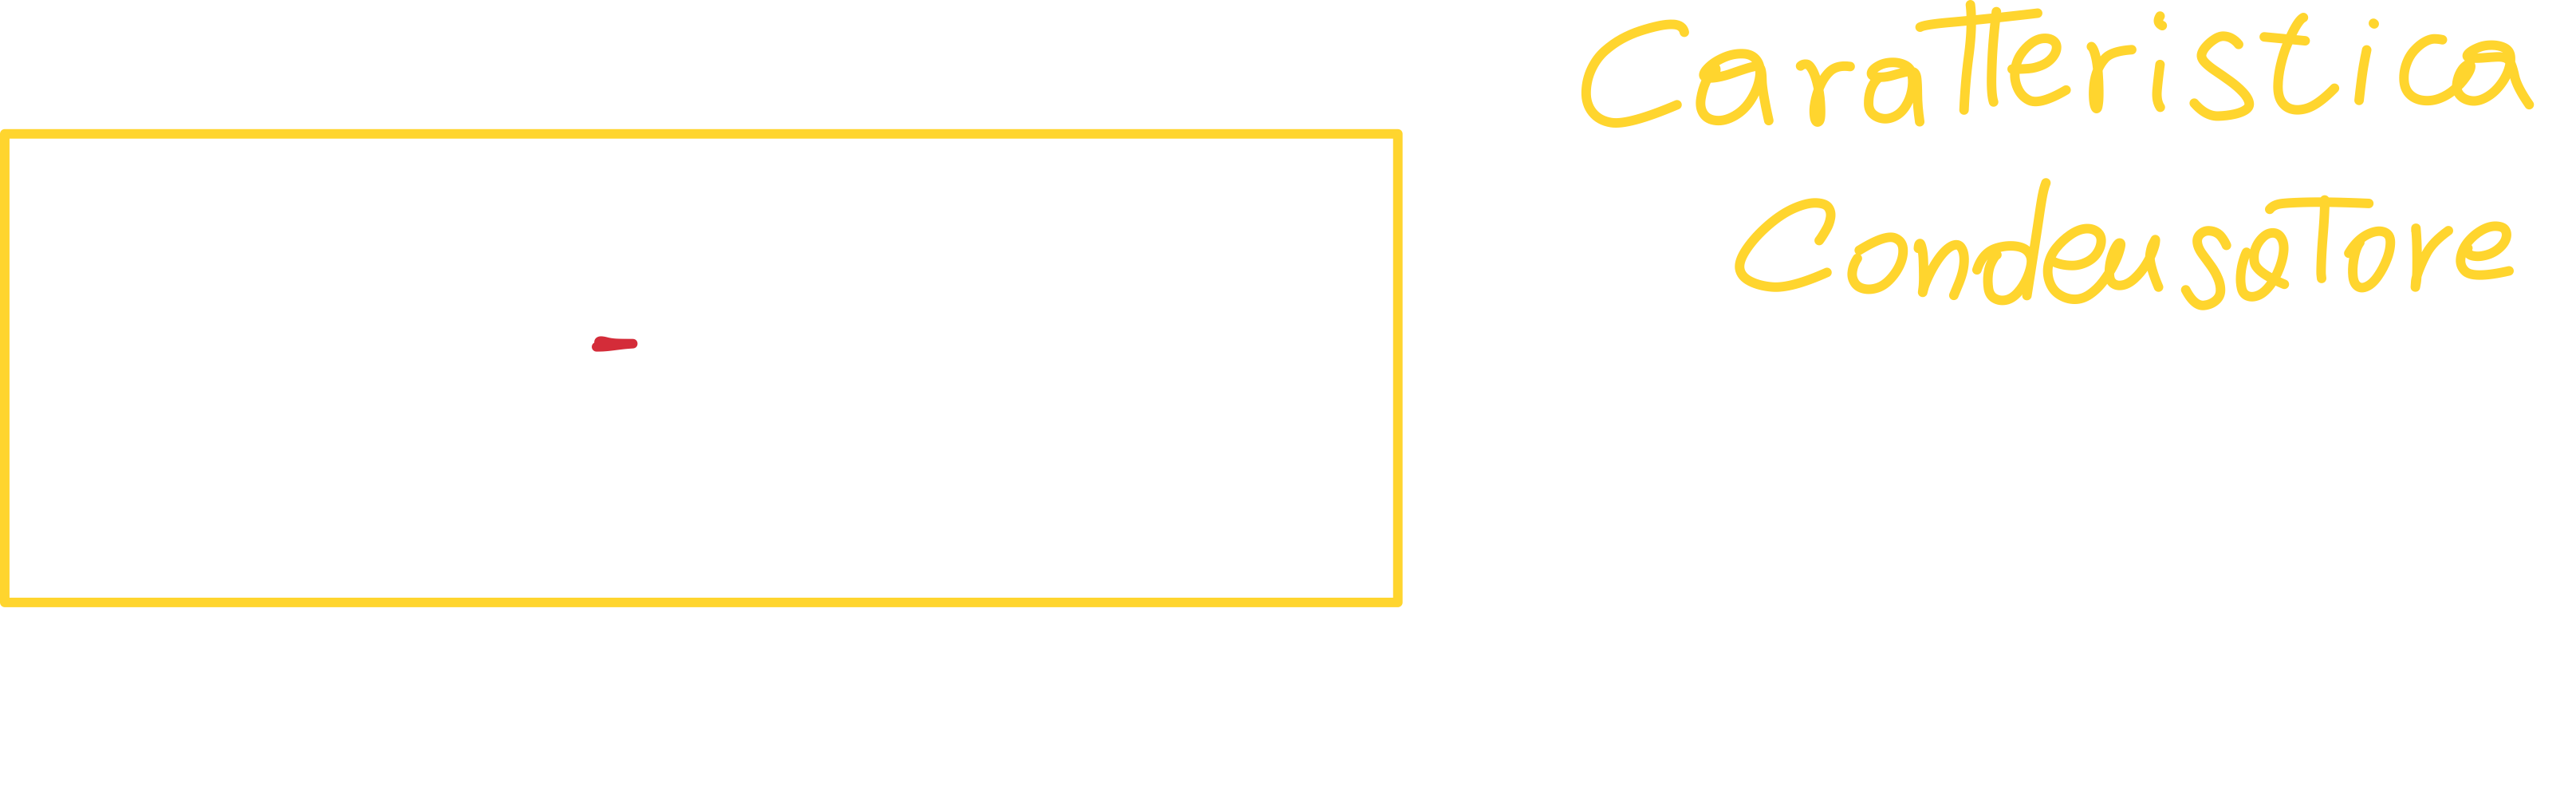 Caratteristica
Condensatore
-